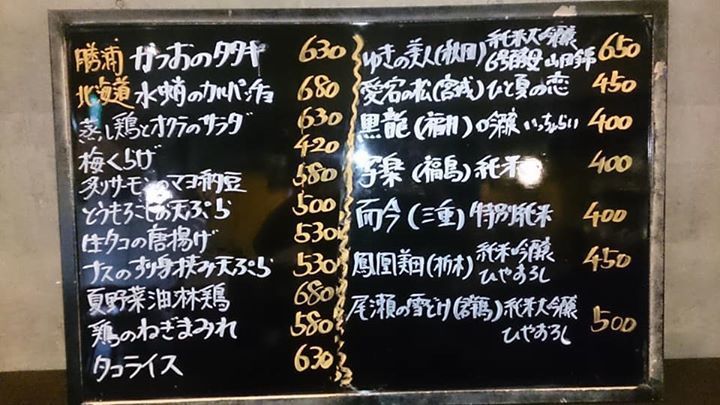 勝浦 かつおのタタキ 630
北海道 水蛸のカルパッチョ 680
蒸し鶏とオクラのサラダ 630
梅くらげ 420
炙りサーモンのマヨ納豆 580
とうもろこしの天ぷら 500
生タコの唐揚げ 530
ナスのすり身挟み天ぷら 530
夏野菜油林鶏 680
鶏のねぎまみれ 580
タコライス 630
ゆきの美人(秋田) 純米大吟醸 650
6号酵母 山田錦
愛宕の松(宮城) ひと夏の恋 450
黒龍(福井) 吟醸 いっちょらい 400
写楽(福島) 純米 400
而今(三重) 特別純米 400
鳳凰美田(栃木) 純米吟醸 450
ひやおろし
尾瀬の雪どけ(群馬) 純米大吟醸 500
ひやおろし